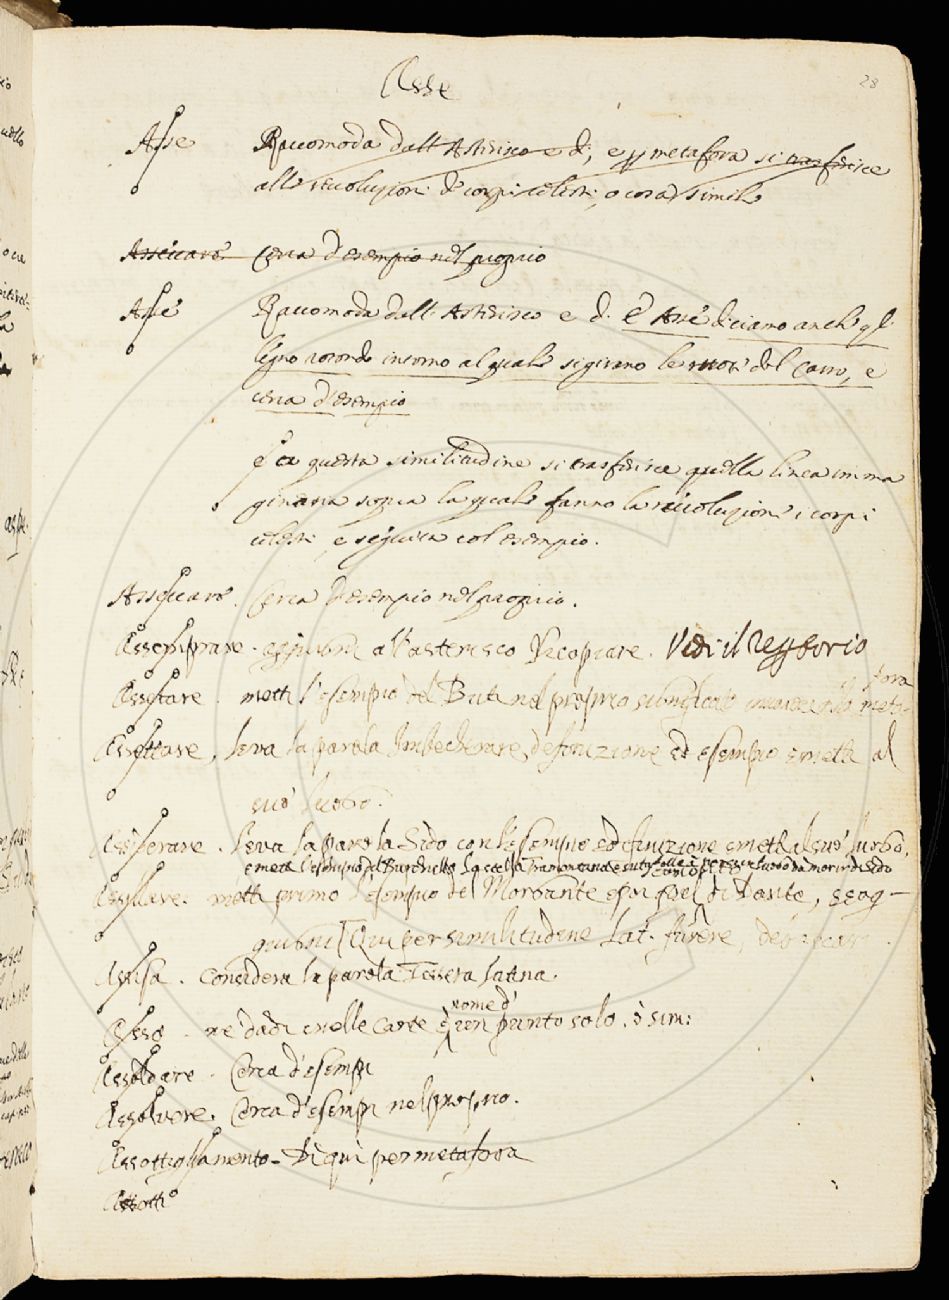 Asse
28
Asse Raccomoda dall'Asterisco e dì, e per metafora si trasferisce
alle revoluzioni de corpi celesti, o cosa simile
Asseccare Cerca d'esempio nel proprio
Asse Raccomoda dall'Asterisco e dì. E Asse diciamo anche q̃l
legno rotondo intorno al quale si girano le ruote del Carro, e
cerca d'esempio
E da questa similitudine si trasferisce quella linea imma
ginaria sopra la quale fanno la revoluzione i corpi
celesti, e seguita col esempio.
Asseccare. Cerca d'esempio nel proprio.
Assemprare. aggiugni all'asterisco Ricopiare. Vedi il Repertorio
Assetare. metti l'esempio del Buti nel proprio significato meta-
fora
Assettare. leva la parola Imbecherare definizione ed esempio e metti al
suo luogo.
Assiderare. leva la parola Sido con l'esempio, e definizione e metti al suo luogo,
e metti l'esempio del Burchiello La stella Tramontana
Assillare. metti primo l'esempio del Morgante e poi quel di Dante, e sog-
giugni Qui per similitudine Lat. furere,
Assisa. Considera la parola Tessera latina
nome d'
Asso. ne' dadi e nelle Carte è un punto solo. ò sim:
Assoldare. Cerca d'esempi
Assolvere. Cerca d'esempi nel proprio.
Assottigliamento. Di qui per metafora
Assotti